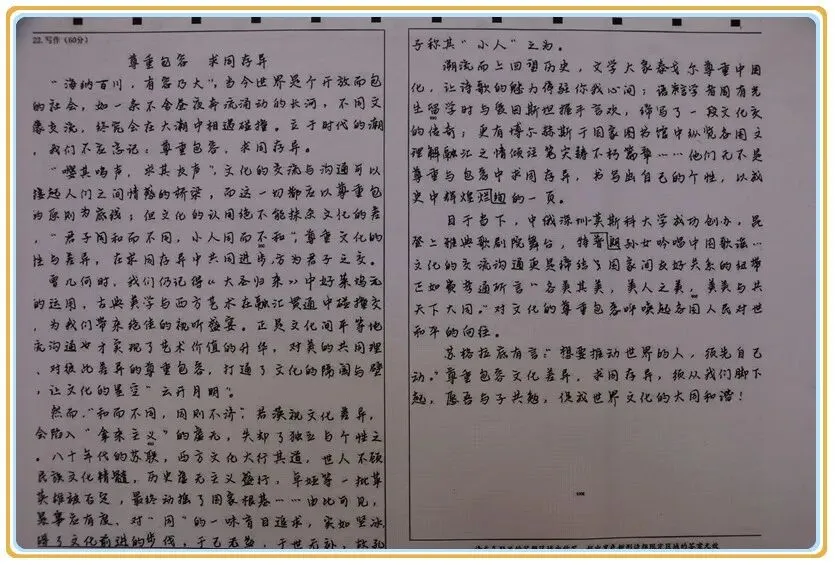 22.写作(60分)
尊重包容 求同存异
“海纳百川,有容乃大”,当今世界是个开放而包
的社会,如一条不舍昼夜奔流涌动的长河,不同文
交流,终究会在大潮中相遇碰撞。立于时代的潮
,我们不应忘记:尊重包容,求同存异。
“嘤其鸣声,求其友声”,文化的交流与沟通可以
人们之间情感的桥梁,而这一切都应以尊重包
为原则为底线;但文化的认同绝不能抹杀文化的差
,“君子同和而不同,小人同而不和”,尊重文化的
性与差异,在求同存异中共同进步,方为君子之交。
曾几何时,我们仍记得《大圣归来》中好莱坞元
的运用,古典美学与西方艺术在融汇贯通中碰撞交
,为我们带来绝佳的视听盛宴。正是文化间平等地
流沟通才实现了艺术价值的升华,对美的共同理
、对彼此差异的尊重包容,打通了文化的隔阂与壁
,让文化的星空“云开月明”。
然而,“和而不同,周则不济”,若漠视文化差异,
会陷入“拿来主义”的虚无,失却了独立与个性之
。八十年代的苏联,西方文化大行其道,世人不顾
民族文化精髓,历史虚无主义盛行,卓娅等一批革
英雄被否定,最终动摇了国家根基……由此可见,
事应有度,对“同”的一味盲目追求,实如坚冰
了文化前进的步伐,于己无益,于世无补,故孔
子称其“小人”之为。
溯流而上回望历史,文学大家泰戈尔尊重中国
化,让诗歌的魅力得驻你我心间;语言学者周有光
生留学时与爱因斯坦握手言欢,缔写了一段文化交
的传奇;更有博尔赫斯于国家图书馆中纵览各国文
理解融汇之情倾注笔尖铸不朽篇章……他们无不是
尊重与包容中求同存异,书写出自己的个性,以成
史中辉煌绚的一页。
目于当下,中俄深圳莫斯科大学成功创办,昆
登上雅典歌剧院舞台,特朗普孙女吟唱中国歌谣…
文化的交流沟通更是缔结了国家间友好关系的纽带
正如费孝通所言“各美其美,美人之美,美美与共
天下大同。”对文化的尊重包容呼唤起各国人民对世
和平的向往。
苏格拉底有言:“想要推动世界的人,须先自己
动。”尊重包容文化差异,求同存异,须从我们脚下
起,愿吾与子共勉,促成世界文化的大同和谐!